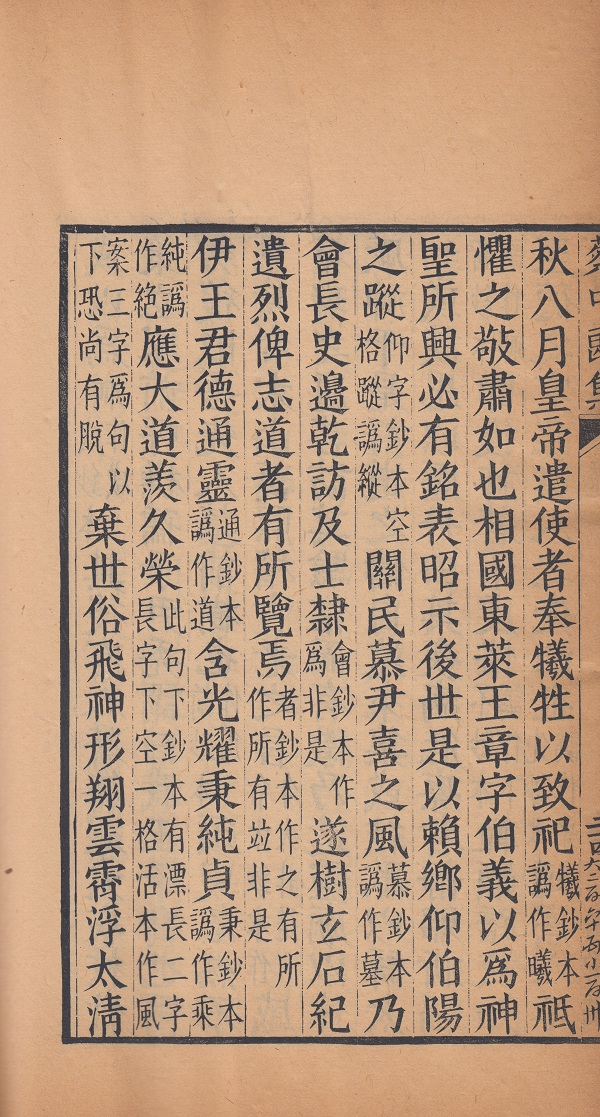 蔡中郎集
秋八月皇帝遣使者奉犧牲以致祀犧鈔本譌作曦祗
懼之敬肅如也相國東萊王章字伯義以爲神
聖所興必有銘表昭示後世是以賴鄉仰伯陽
之蹤仰字鈔本空格蹤譌縱關民慕尹喜之風慕鈔本譌作墓乃
會長史邊乾訪及士隸會鈔本作爲非是遂樹玄石紀
遺烈俾志道者有所覽焉者鈔本作之有所作所有竝非是
伊王君德通靈通鈔本譌作道含光耀秉純貞秉鈔本譌作乘
純譌作絶應大道羨久榮此句下鈔本有漂長二字長字下空一格活本作風
案三字爲句以下恐尚有脫棄世俗飛神形翔雲霄浮太清